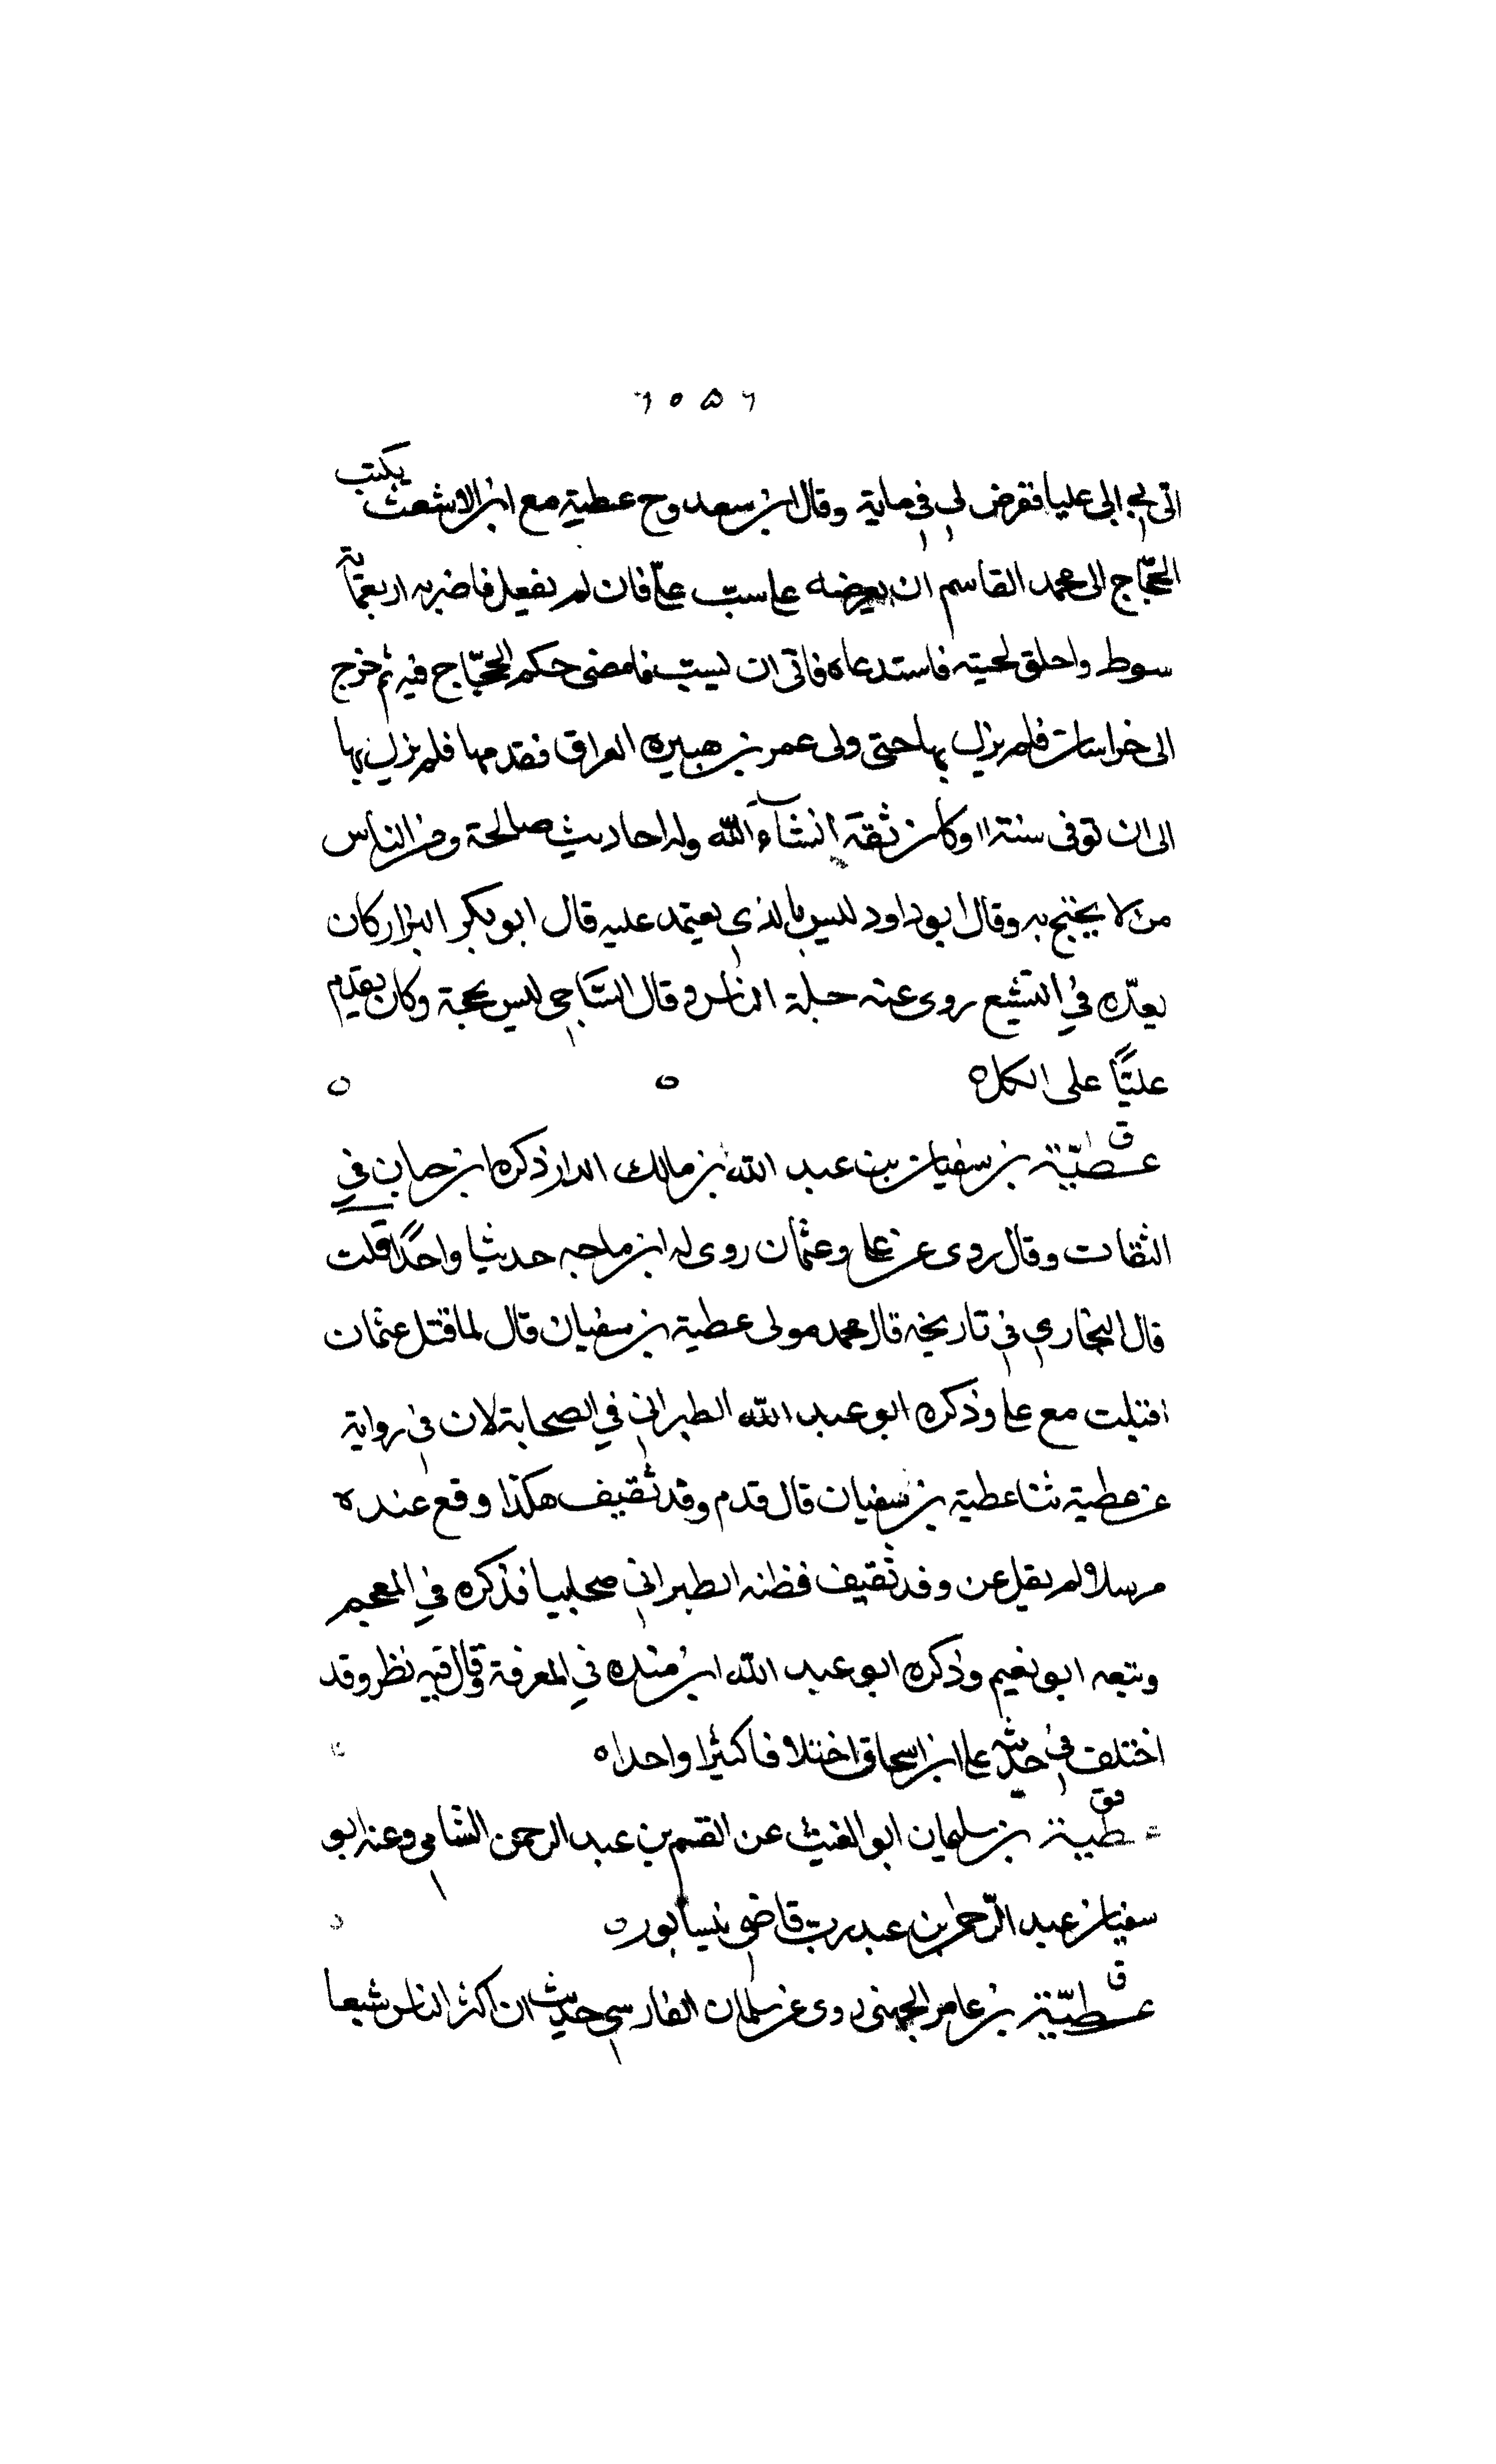 ٦٥٥٦
اتى بى ابى عليا ففرض لى فى ماية وقال ابن سعد وخرج عطية مع ابن الاشعث يكتب
الحجّاج الى محمد القاسم ان يعرضه على سب علىّ فان لم يفعل فاضربه اربعماية
سوط واحلق لحيته فاستدعاه فاتى ان ليسبّ فامضى حكم الحجّاج فيه ثم خرج
الى خراسان فلم يزل بها حتى ولى عمر بن هبيره العراق فقدمها فلم يزل بها
الى ان توفى سنة ١١ وكان ثقة انشآء اللّه وله احاديث صالحة ومن الناس
من لا يحتج به وقال ابو داود ليس بالذى يعتمد عليه قال ابو بكر البزار كان
يعدّه فى التشيع روى عنه جلة الناس وقال السّاجى ليس بحجة وكان يقدم
عليّا على الكل ٥
عطيّة بن سفيان بن عبد اللّه بن مالك الدار ذكره ابن حبان فى
الثقات وقال روى عن على وعثمان روى له ابن ماجه حديثا واحدا قلت
قال البخارى فى تاريخه قال محمد مولى عطية بن سفيان قال لما قتل عثمان
اقتبلت مع على وذكره ابو عبد اللّه الطبرانى فى الصحابة لان فى رواية
عن عطية ثنا عطية بن سفيان قال قدم وفد ثقيف هكذا وقع عنده
مرسلا ولم يقل عن وفد ثقيف فظنه الطبرانى صحابيا فذكره فى المعجم
وتبعه ابو نعيم وذكره ابو عبد اللّه ابن منده فى المعرفة وقال فيه نظر وقد
اختلف فى حديثه على ابن اسحاق اختلافا كثيرا واحدا ٥
فق
عطية بن سليمان ابو الغيث عن القسم بن عبد الرحمن الشامى وعنه ابو
سفيان عبد الرّحمن بن عبد رب قاضى نيسابور ٥
ق
عطيّة بن عامر الجهنى روى عن سلمان الفارسى حديث ان اكثر الناس شبعا